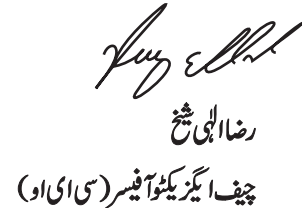 رضا الٰہی شیخ
چیف ایگزیکٹو آفیسر (سی ای او)